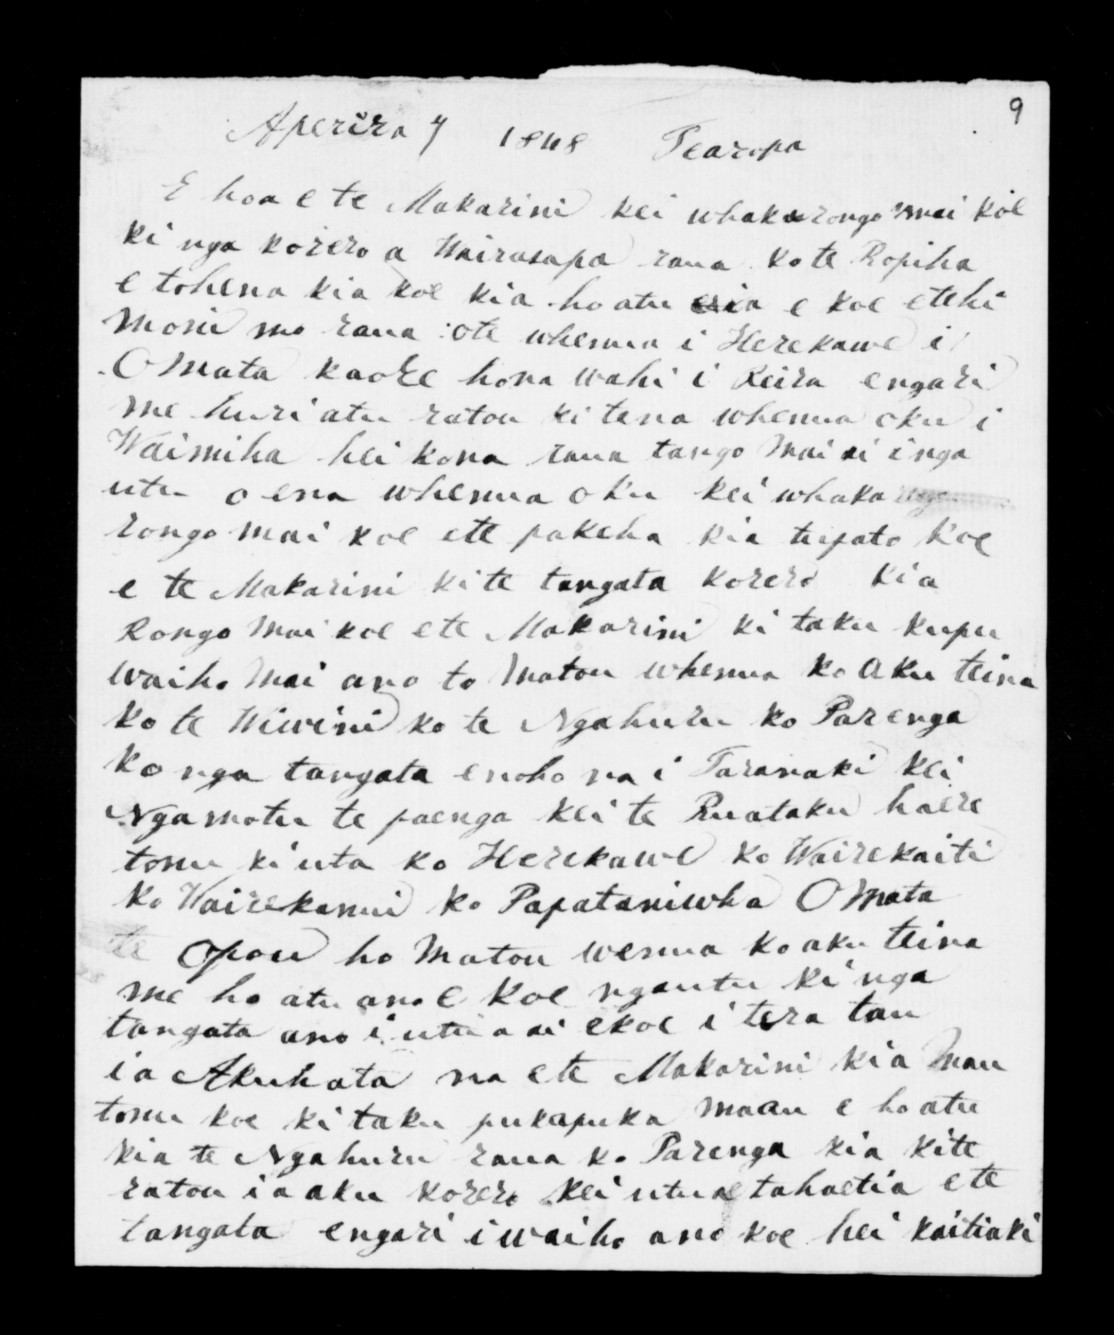 9
Aperira 7 1848 Tearopa
E hoa e te Makarini kei whakarongo mai koe
ki nga korero a Wairarapa raua ko te Ropiha
e tohena kia koe kia ho atu e koe etehi
moni mo raua ote whenua i Herekawe i
Omata kaore hona wahi i Reira engari
me huri atu ratou ki tana whenua oku i
Waimiha hei kona raua tango mai ai i nga
utu o ena whenua oku kei whaka
rongo mai koe ete pakeha kia tupato koe
e te Makarini ki te tangata korero kia
Rongo mai koe ete Makarini ki taku kupu
waiho mai ano to matou whenua ko aku teina
ko te Wiwini ko te Ngahuru ko Parenga
ko nga tangata e noho na i Taranaki kei
Ngamotu te paenga kei te Ruataku haere
tonu ki uta ko Herekawe ko Wairekaiti
ko Wairekanui ko Papataniwha Omata
te Opou ho matou wenua ko aku teina
me ho atu ano e koe ngautu ki nga
tangata ano i utua ai ekoe i tera tau
i a Akuhata na ete Makarini kia mau
tonu koe ki taku pukapuka maau e ho atu
kia te Ngahuru raua ko Parenga kia kite
ratou i a aku korero kei utua tahaetia e te
tangata engari i waiho ano koe hei kaitiaki